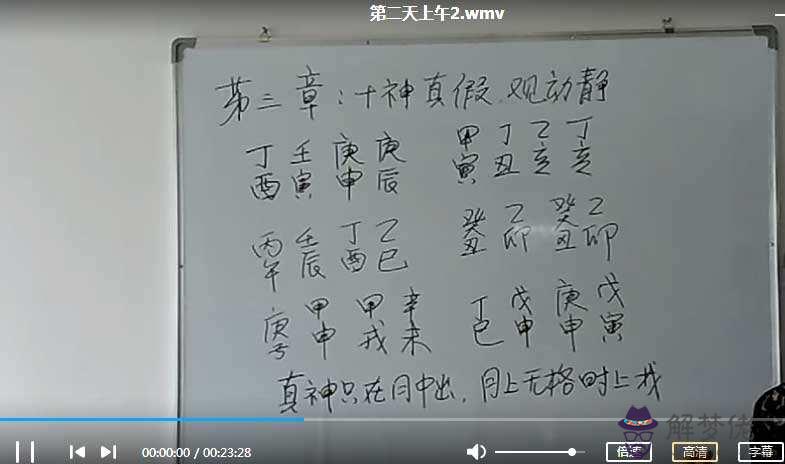 第二天上午2.wmv
第三章：十神真假.观动静
丁 壬 庚 庚 甲 丁 乙 丁
酉 寅 申 辰 寅 丑 亥 亥
丙 壬 丁 乙 癸 乙 癸 乙
午 辰 酉 巳 丑 卯 丑 卯
庚 甲 甲 辛 丁 戊 庚 戊
子 申 戌 未 巳 申 申 寅
真神只在月中出，月上无格时上找
解梦佛
00:00:00 / 00:23:28 倍速 高清 字幕